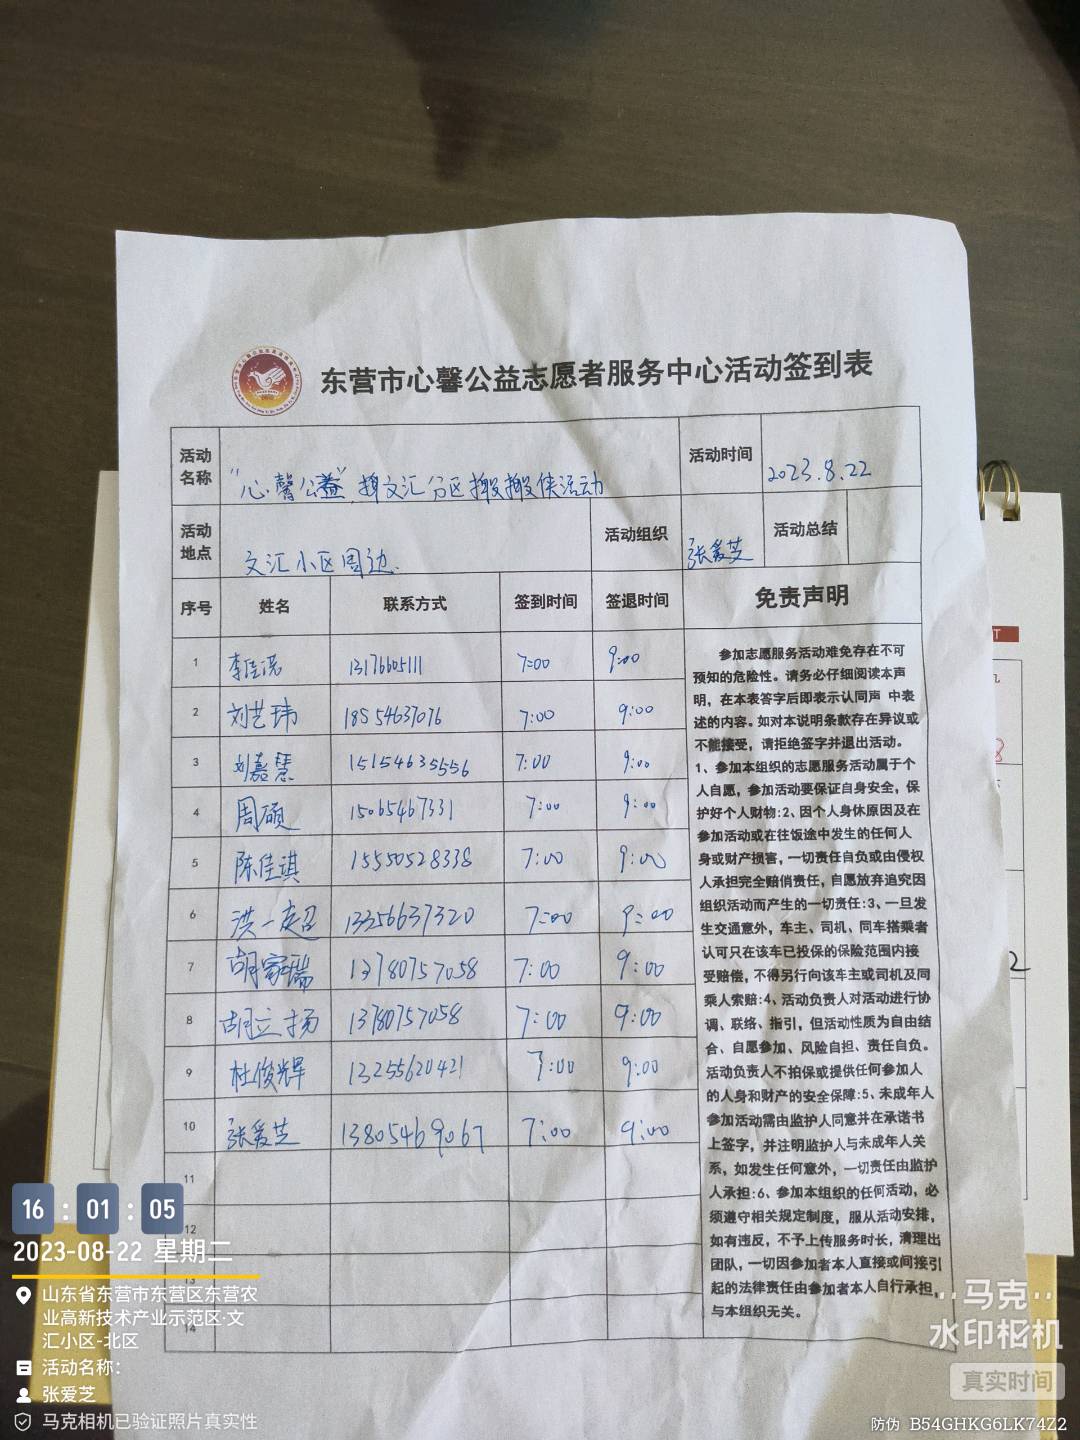 东营市心馨公益志愿者服务中心活动签到表
活动名称 “心馨公益” 文汇分区搬搬侠活动 活动时间 2023.8.22
活动地点 文汇小区周边. 活动组织 张爱芝 活动总结
序号 姓名 联系方式 签到时间 签退时间 免责声明
1 李佳 13176605111 7:00 9:00
2 刘艺玮 18554637076 7:00 9:00
3 刘嘉慧 15154635556 7:00 9:00
4 周硕 15065467331 7:00 9:00
5 陈佳琪 15550528338 7:00 9:00
6 洪一 13256637320 7:00 9:00
7 胡家瑞 13780757058 7:00 9:00
8 胡立扬 13780757058 7:00 9:00
9 杜俊辉 13255620421 7:00 9:00
10 张爱芝 13805469067 7:00 9:00
11
12
13
14
参加志愿服务活动难免存在不可
预知的危险性。请务必仔细阅读本声
明，在本表签字后即表示认同声 中表
述的内容。如对本说明条款存在异议或
不能接受，请拒绝签字并退出活动。
1、参加本组织的志愿服务活动属于个
人自愿，参加活动要保证自身安全，保
护好个人财物:2、因个人身休原因及在
参加活动或在往饭途中发生的任何人
身或财产损害，一切责任自负或由侵权
人承担完全赔偿责任，自愿放弃追究因
组织活动而产生的一切责任:3、一旦发
生交通意外，车主、司机、同车搭乘者
认可只在该车已投保的保险范围内接
受赔偿，不得另行向该车主或司机及同
乘人索赔:4、活动负责人对活动进行协
调、联络、指引，但活动性质为自由结
合、自愿参加、风险自担、责任自负。
活动负责人不拍保或提供任何参加人
的人身和财产的安全保障:5、未成年人
参加活动需由监护人同意并在承诺书
上签字，并注明监护人与未成年人关
系，如发生任何意外，一切责任由监护
人承担:6、参加本组织的任何活动，必
须遵守相关规定制度，服从活动安排，
如有违反，不予上传服务时长，清理出
团队，一切因参加者本人直接或间接引
起的法律责任由参加者本人自行承担，
与本组织无关。
16:01:05
2023-08-22 星期二
山东省东营市东营区东营农
业高新技术产业示范区·文
汇小区-北区
活动名称:
张爱芝
马克相机已验证照片真实性
马克
水印相机
真实时间
防伪 B54GHKG6LK74Z2